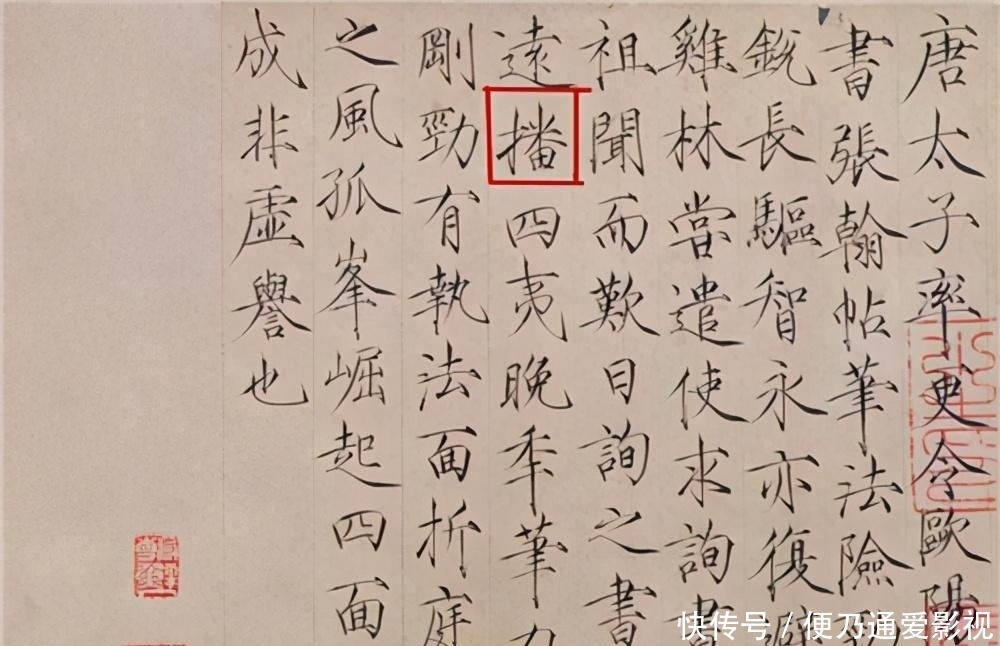 唐太子率更令歐陽
書張翰帖筆法險勁
銳長驅智永亦復避
雞林嘗遣使求詢書
祖聞而歎曰詢之書
遠播四夷晚年筆力
剛勁有執法面折庭
之風孤峯崛起四面
成非虛譽也
快传号 / 便乃通爱影视